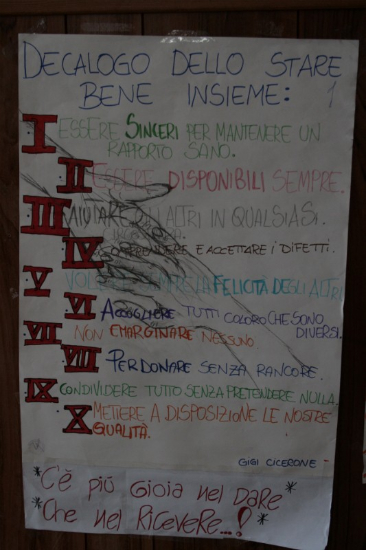 DECALOGO DELLO STARE
BENE INSIEME: 1
I ESSERE SINCERI PER MANTENERE UN
RAPPORTO SANO.
II ESSERE DISPONIBILI SEMPRE.
III AIUTARE GLI ALTRI IN QUALSIASI.
IV COMPRENDERE E ACCETTARE I DIFETTI.
V FELICITÀ DEGLI ALTRI
VI ACCOGLIERE TUTTI COLORO CHE SONO
DIVERSI.
VII NON EMARGINARE NESSUNO
VIII PERDONARE SENZA RANCORE.
IX CONDIVIDERE TUTTO SENZA PRETENDERE NULLA.
X METTERE A DISPOSIZIONE LE NOSTRE
QUALITÀ.
GIGI CICERONE
*C'È PIÙ GIOIA NEL DARE*
*CHE NEL RICEVERE...!*